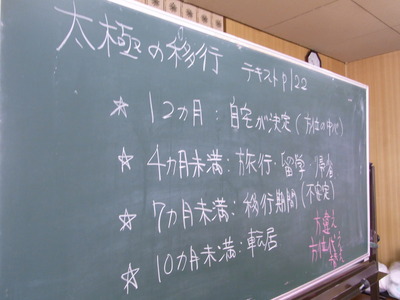 太極の移行 テキストp122
☆ 12ヵ月：自宅が決定（方位の中心）
☆ 4ヵ月未満：旅行・留学・帰省
☆ 7ヵ月未満：移行期間（不安定）
☆ 10ヵ月未満：転居
方違え